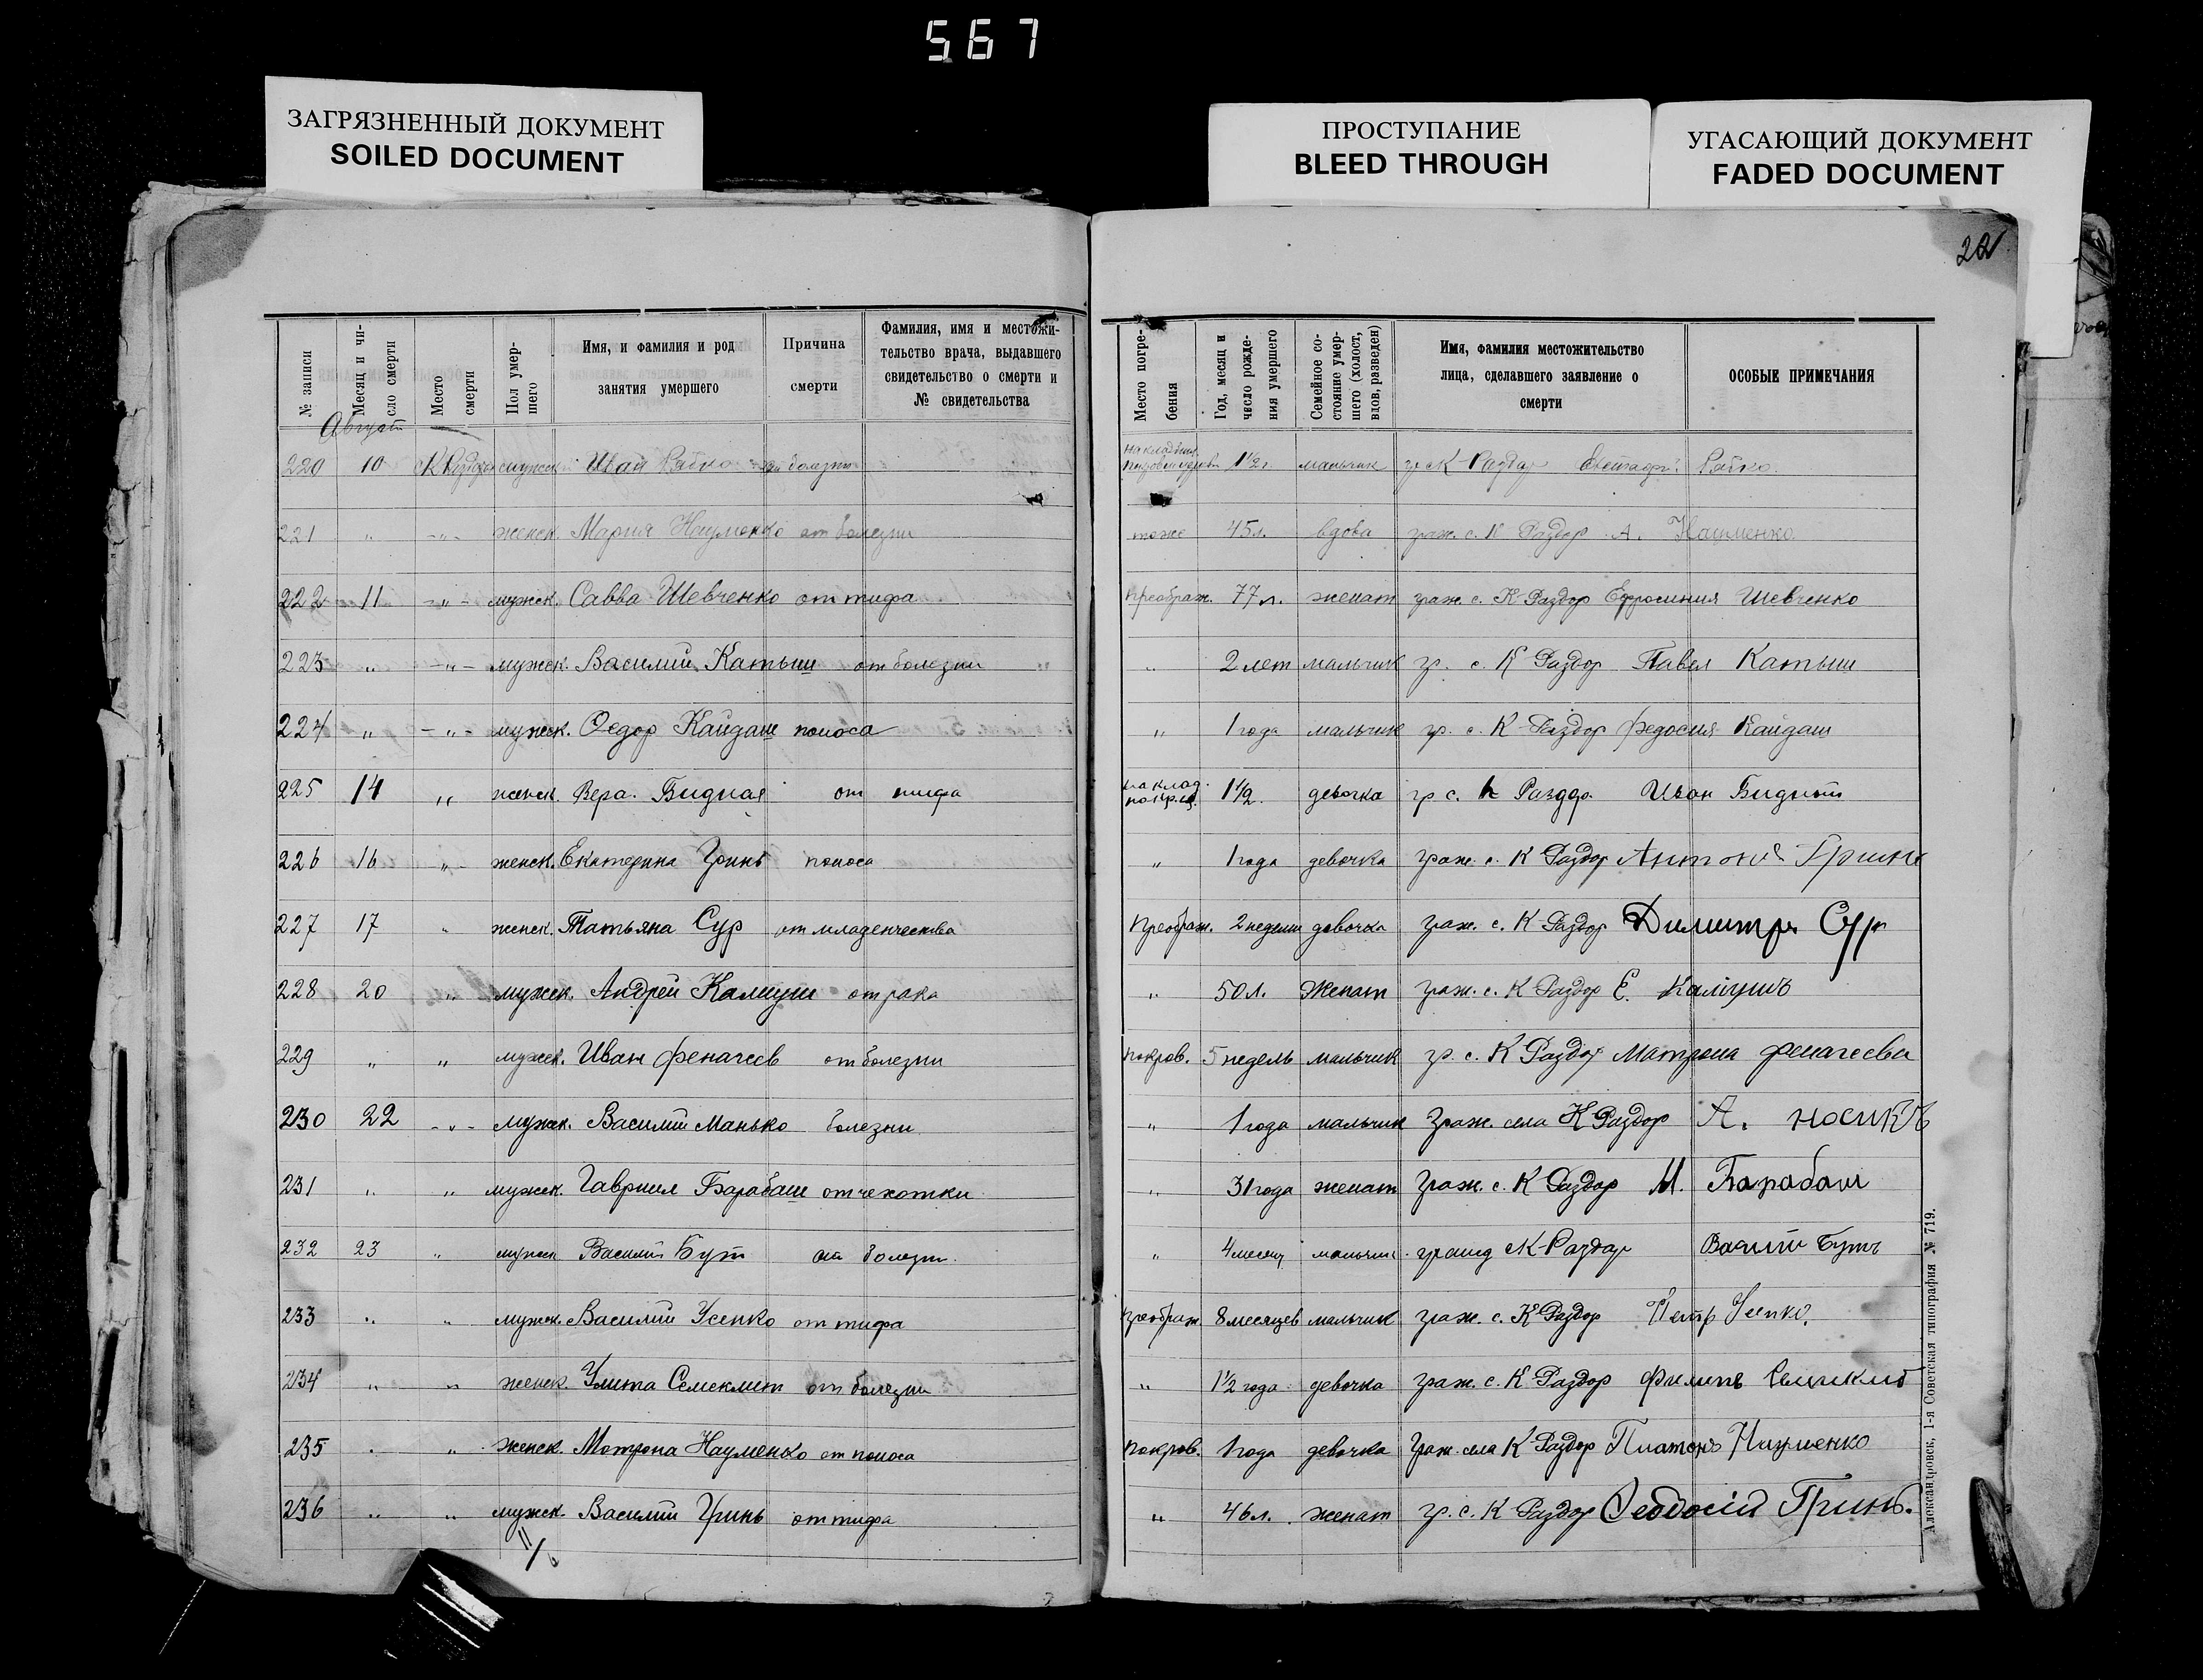 567
ЗАГРЯЗНЕННЫЙ ДОКУМЕНТ
SOILED DOCUMENT
ПРОСТУПАНИЕ
BLEED THROUGH
УГАСАЮЩИЙ ДОКУМЕНТ
FADED DOCUMENT
22
№ записи
Месяц и число смерти
Место смерти
Пол умершего
Имя, и фамилия и род занятия умершего
Причина смерти
Фамилия, имя и местожительство врача, выдавшего свидетельство о смерти и № свидетельства
Место погребения
Год, месяц и число рождения умершего
Семейное состояние умершего (холост, вдов, разведен)
Имя, фамилия местожительство лица, сделавшего заявление о смерти
ОСОБЫЕ ПРИМЕЧАНИЯ
Август
220 10 мужск Иван Рябко от болезни 1½ г мальчик К-Раздор Рябко
221 " -"- женск. Мария Науменко от болезни тоже 45 л. вдова граж. с. К Раздор А. Науменко
222 11 -"- мужск. Савва Шевченко от тифа Преображ. 77 л. женат граж. с. К Раздор Ефросиния Шевченко
223 " -"- мужск. Василий Катыш от болезни " 2 лет мальчик гр. с. К Раздор Павел Катыш
224 " -"- мужск. Федор Кайдаш поноса " 1 года мальчик гр. с. К-Раздор Федосия Кайдаш
225 14 " женск. Вера Бидная от тифа на клад. 1½ девочка гр с. К Раздор Иван Бидный
226 16 " женск. Екатерина Гринь поноса " 1 года девочка граж. с. К Раздор Антон Гринь
227 17 " женск. Татьяна Сур от младенчества Преображ. 2 недели девочка граж. с. К-Раздор Димитръ Сур
228 20 " мужск. Андрей Калиуш от рака " 50 л. женат граж. с. К Раздор Е. Каліушъ
229 " " мужск. Иван Феначеев от болезни покров. 5 недель мальчик гр. с. К Раздор Матрона Феначеева
230 22 -"- мужск. Василий Манько болезни " 1 года мальчик граж. села К Раздор А. носикъ
231 " " мужск. Гавриил Барабаш от чехотки " 31 года женат граж. с. К-Раздор М. Барабаш
232 23 " мужск Василий Бут от болезн. " 4 месяц мальчик К-Раздор Василий Бутъ
233 " " мужск. Василий Усенко от тифа Преображ. 8 месяцев мальчик граж. с. К-Раздор Петр Усенко.
234 " " женск. Улита Семеклит от болезни " 1½ года девочка граж. с. К-Раздор Филипъ
235 " " женск. Мотрона Науменко от поноса покров. 1 года девочка граж. села К-Раздор Платонъ Науменко
236 " " мужск. Василий Гринь от тифа " 46 л. женат гр. с. К-Раздор Феодосій Гринь.
Александровск, 1-я Советская типография № 719.